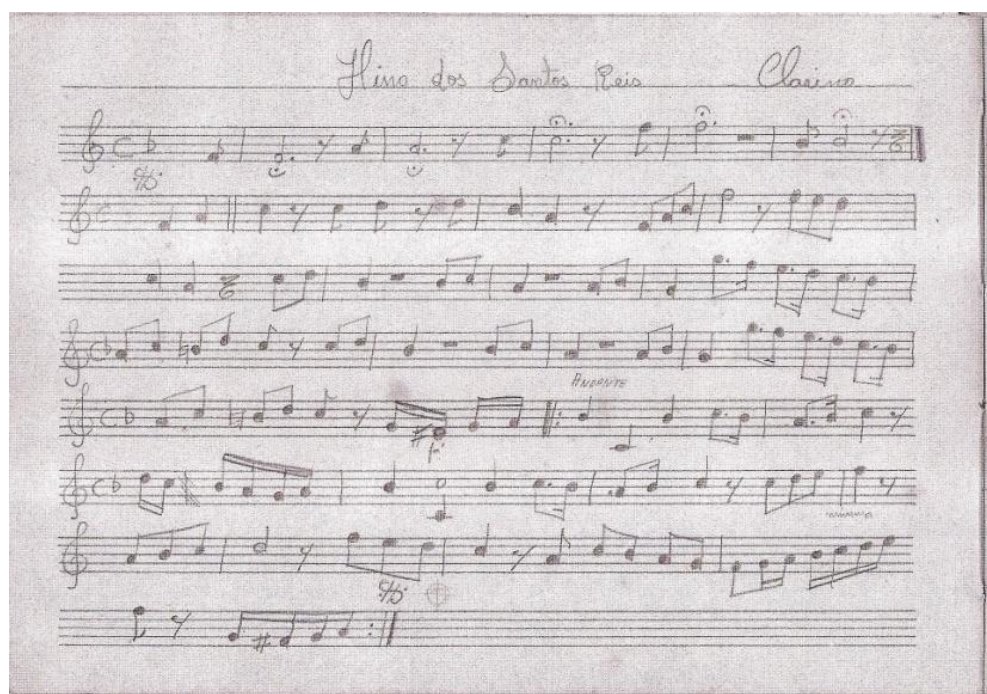 Hino dos Santos Reis Clarino
ANDANTE